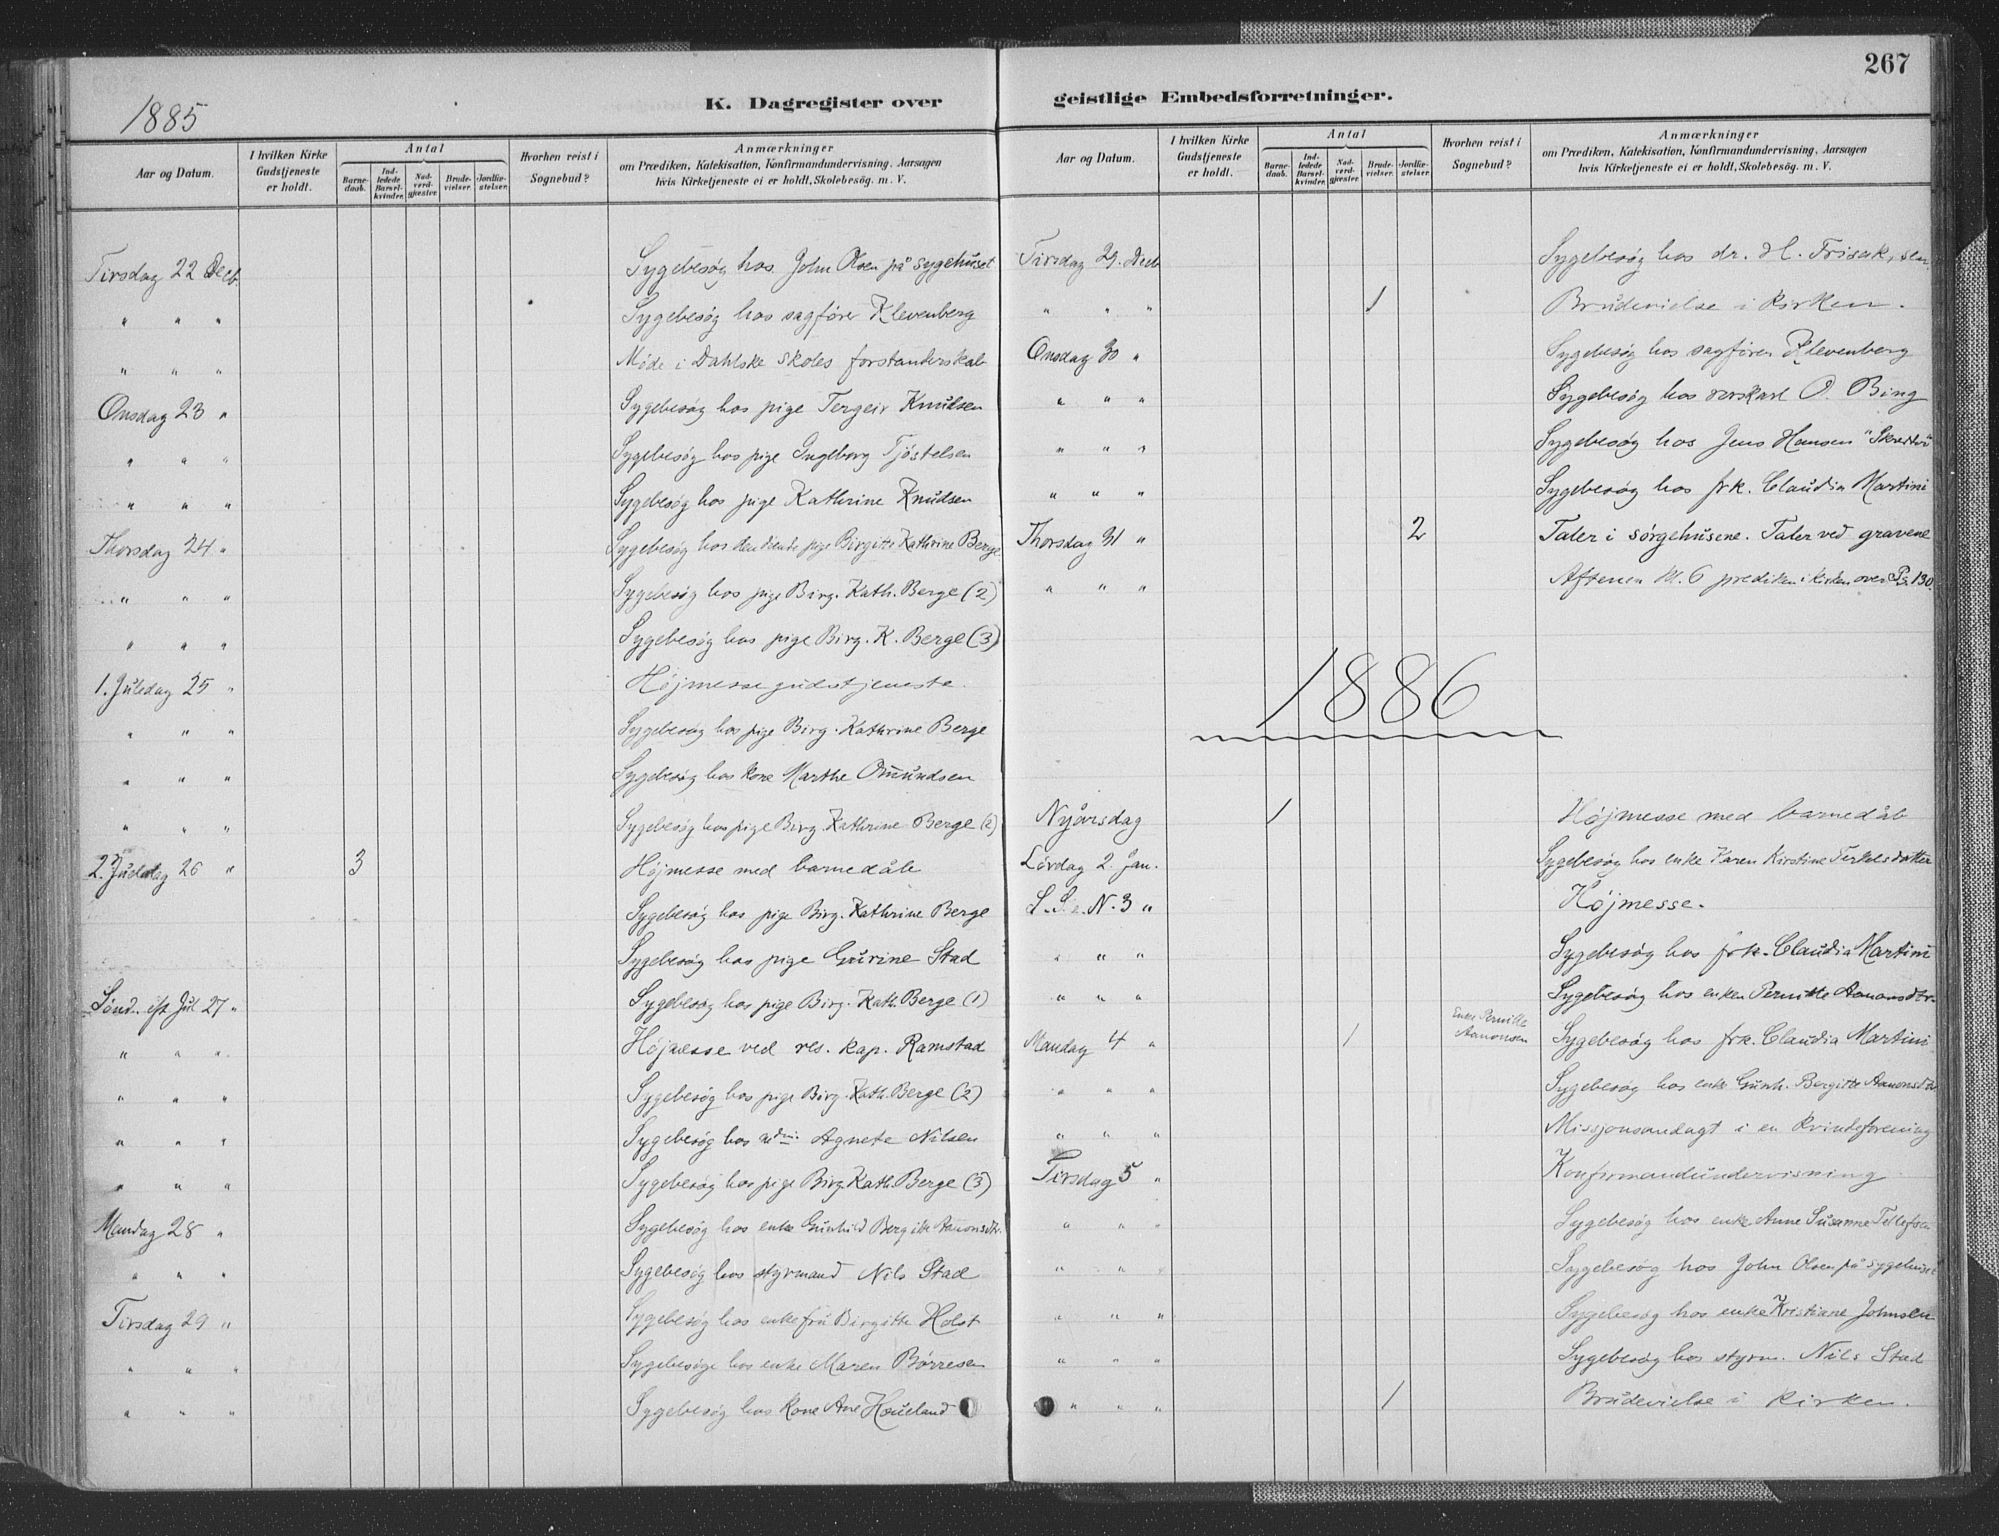 267
1885
K. Dagregister over geistlige Embedsforretninger.
Aar og Datum.
I hvilken Kirke Gudstjeneste er holdt.
Antal
Barnedaab.
Indledede Barselkvinder.
Nadverdgjæster.
Brudevielser.
Jordfæstelser.
Hvorhen reist i Sognebud?
Anmærkninger
om Prædiken, Katekisation, Konfirmandundervisning, Aarsagen
hvis Kirketjeneste ei er holdt, Skolebesøg. m. V.
Tirsdag 22 Decb. Sygebesøg hos John Olsen på sygehuset
" " " Sygebesøg hos sagfører Klevenberg
" " " Møde i Dahlske skoles forstanderskab
Onsdag 23 " Sygebesøg hos pige Tergeir Knudsen
" " " Sygebesøg hos pige Ingeborg Tjöstelsen
" " " Sygebesøg hos pige Kathrine Knudsen
Thorsdag 24 " Sygebesøg hos pige Birgitte Kathrine Berge
" " " Sygebesøg hos pige Birg. Kath. Berge (2)
" " " Sygebesøg hos pige Birg. K. Berge (3)
1. Juledag 25 " Højmessegudstjeneste.
" " " Sygebesøg hos pige Birg. Kathrine Berge
" " " Sygebesøg hos kone Marthe Omundsen
" " " Sygebesøg hos pige Birg. Kathrine Berge (2)
2. Juledag 26 " 3 Højmesse med barnedåb
Sygebesøg hos pige Birg. Kathrine Berge
Sygebesøg hos pige Gurine Stad
Sønd. eft Jul 27 " Sygebesøg hos pige Birg. Kath. Berge (1)
" " " Højmesse ved res. kap. Ramstad
" " " Sygebesøg hos pige Birg. Kath. Berge (2)
" " " Sygebesøg hos Agnete Nilsen
" " " Sygebesøg hos pige Birg. Kath. Berge (3)
Mandag 28 " Sygebesøg hos enke Gunhild Bergitte Aanonsdtr.
" " " Sygebesøg hos styrmand Nils Stad
Tirsdag 29 " Sygebesøg hos enkefru Birgitte Holst
" " " Sygebesøge hos enke Maren Børresen
" " " Sygebesøg hos kone Ane Houeland
Aar og Datum.
I hvilken Kirke Gudstjeneste er holdt.
Antal
Barnedaab.
Indledede Barselkvinder.
Nadverdgjæster.
Brudevielser.
Jordfæstelser.
Hvorhen reist i Sognebud?
Anmærkninger
om Prædiken, Katekisation, Konfirmandundervisning, Aarsagen
hvis Kirketjeneste ei er holdt, Skolebesøg. m. V.
Tirsdag 29. Decb Sygebesøg hos dr. H. Frisak, sen.
" " " 1 Brudevielse i kirken.
Onsdag 30 " Sygebesøg hos sagfører Klevenberg
" " " Sygebesøg hos O. Bing
" " " Sygebesøg hos Jens Hansen
" " " Sygebesøg hos frk. Claudia Martini
Thorsdag 31 " 2 Taler i sørgehusene. Taler ved gravene
" " " Aftenen kl. 6 prediken i kirken over Ps. 130.
1886
Nyårsdag 1 Højmesse med barnedåb
Lørdag 2. Jan. Sygebesøg hos enke Karen Kirstine Terkelsdatter
S. S. e. N. 3 " Højmesse.
" " " Sygebesøg hos frk. Claudia Martini
" " " Sygebesøg hos enken Pernille Aanonsdtr.
Mandag 4 " 1 Enke Pernille Aanonsen Sygebesøg hos frk. Claudia Martini
" " " Sygebesøg hos enke Gunh. Bergitte Aanonsdtr
" " " Missjonsandagt i en kvindeforening
Tirsdag 5 " Konfirmandundervisning
" " " Sygebesøg hos enke Anne Susanne Tellefsen
" " " Sygebesøg hos John Olsen på sygehuset
" " " Sygebesøg hos enke Kristiane Johnsen
" " " Sygebesøg hos styrm. Nils Stad
" " " 1 Brudevielse i kirken.